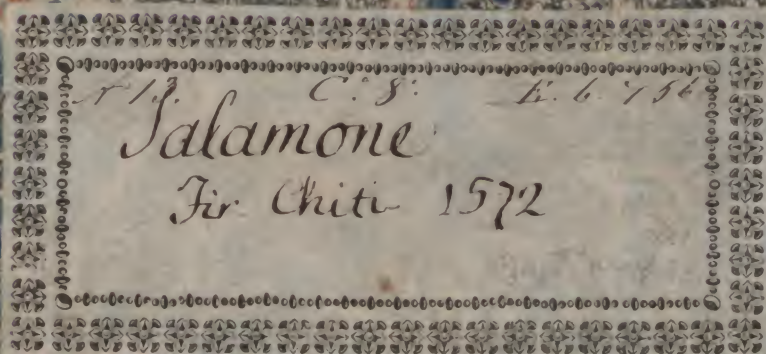 N 13. C. 8. E. 6. 7 56
Salamone
Fir Chiti 1572